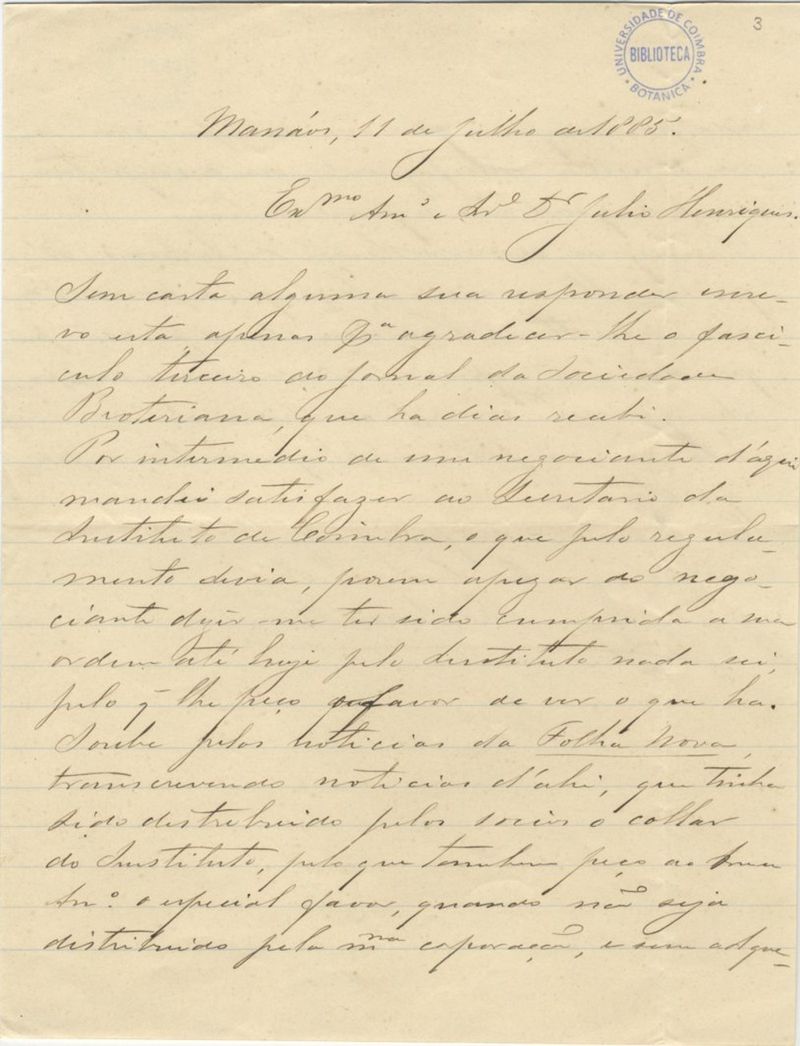 3
UNIVERSIDADE DE COIMBRA
BIBLIOTECA
BOTANICA
Manáos, 11 de Julho de 1885.
Exmo Amo e Sr. Dr Julio Henriques.
Sem carta alguma sua responder escre-
vo esta apenas pa agradecer-lhe o fasci-
culo terceiro do jornal da Sociedade
Broteriana, que ha dias recebi.
Por intermedio de um negociante d'aqui
mandei satisfazer ao Secretario do
Instituto de Coimbra, o que pelo regula-
mento devia, porem apezar do nego-
ciante dizer-me ter sido cumprida a ma
ordem até hoje pelo Instituto nada sei,
pelo q̃ lhe peço o favor de ver o que ha.
Soube pelas noticias da Folha Nova,
transcrevendo noticias d'ahi, que tinha
sido destribuido pelos socios o collar
do Instituto, pelo que tambem peço ao meu
Amo. o especial favor, quando não seja
distribuido pela mma corporação, e sem adque-